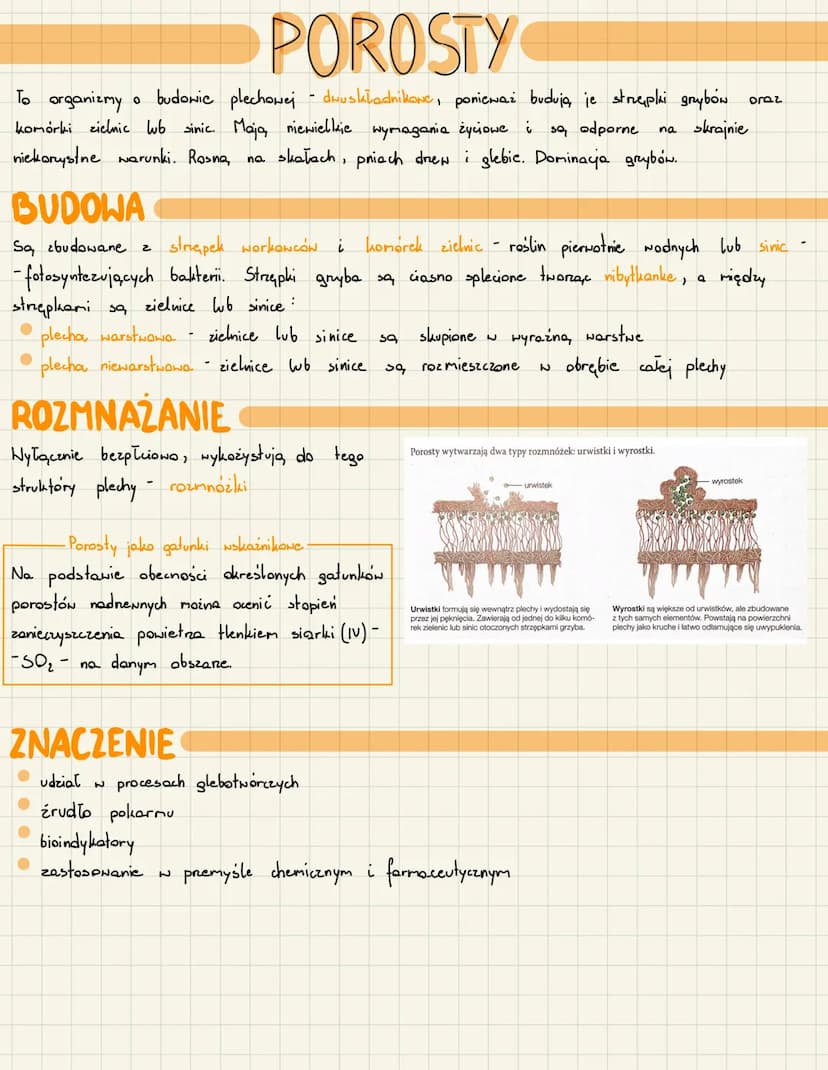 POROSTY
To organizmy o budowie plechowej - dwuskładnikowe, ponieważ budują je strzępki grzybów oraz
komórki zielnic lub sinic. Mają niewielkie wymagania życiowe i są odporne na skrajnie
niekorzystne warunki. Rosną na skałach, pniach drzew i glebie. Dominacja grzybów.
BUDOWA
Są zbudowane z strzępek workowców i komórek zielnic - roślin pierwotnie wodnych lub sinic -
- fotosyntezujących bakterii. Strzępki grzyba są ciasno splecione tworząc nibytkankę, a między
strzępkami są zielnice lub sinice:
plecha warstwowa - zielnice lub sinice są skupione w wyraźną warstwę
plecha niewarstwowa - zielnice lub sinice są rozmieszczone w obrębie całej plechy
ROZMNAŻANIE
Wyłącznie bezpłciowo, wykożystują do tego
struktóry plechy - rozmnóżki
Porosty wytwarzają dwa typy rozmnóżek: urwistki i wyrostki.
urwistek
wyrostek
Urwistki formują się wewnątrz plechy i wydostają się
przez jej pęknięcia. Zawierają od jednej do kilku komó-
rek zielenic lub sinic otoczonych strzępkami grzyba.
Wyrostki są większe od urwistków, ale zbudowane
z tych samych elementów. Powstają na powierzchni
plechy jako kruche i łatwo odłamujące się uwypuklenia.
Porosty jako gatunki wskaźnikowe
Na podstawie obecności określonych gatunków
porostów nadrzewnych można ocenić stopień
zanieczyszczenia powietrza tlenkiem siarki (IV) -
- SO₂ - na danym obszarze.
ZNACZENIE
udział w procesach glebotwórczych
źrudło pokarmu
bioindykatory
zastosowanie w przemyśle chemicznym i farmaceutycznym